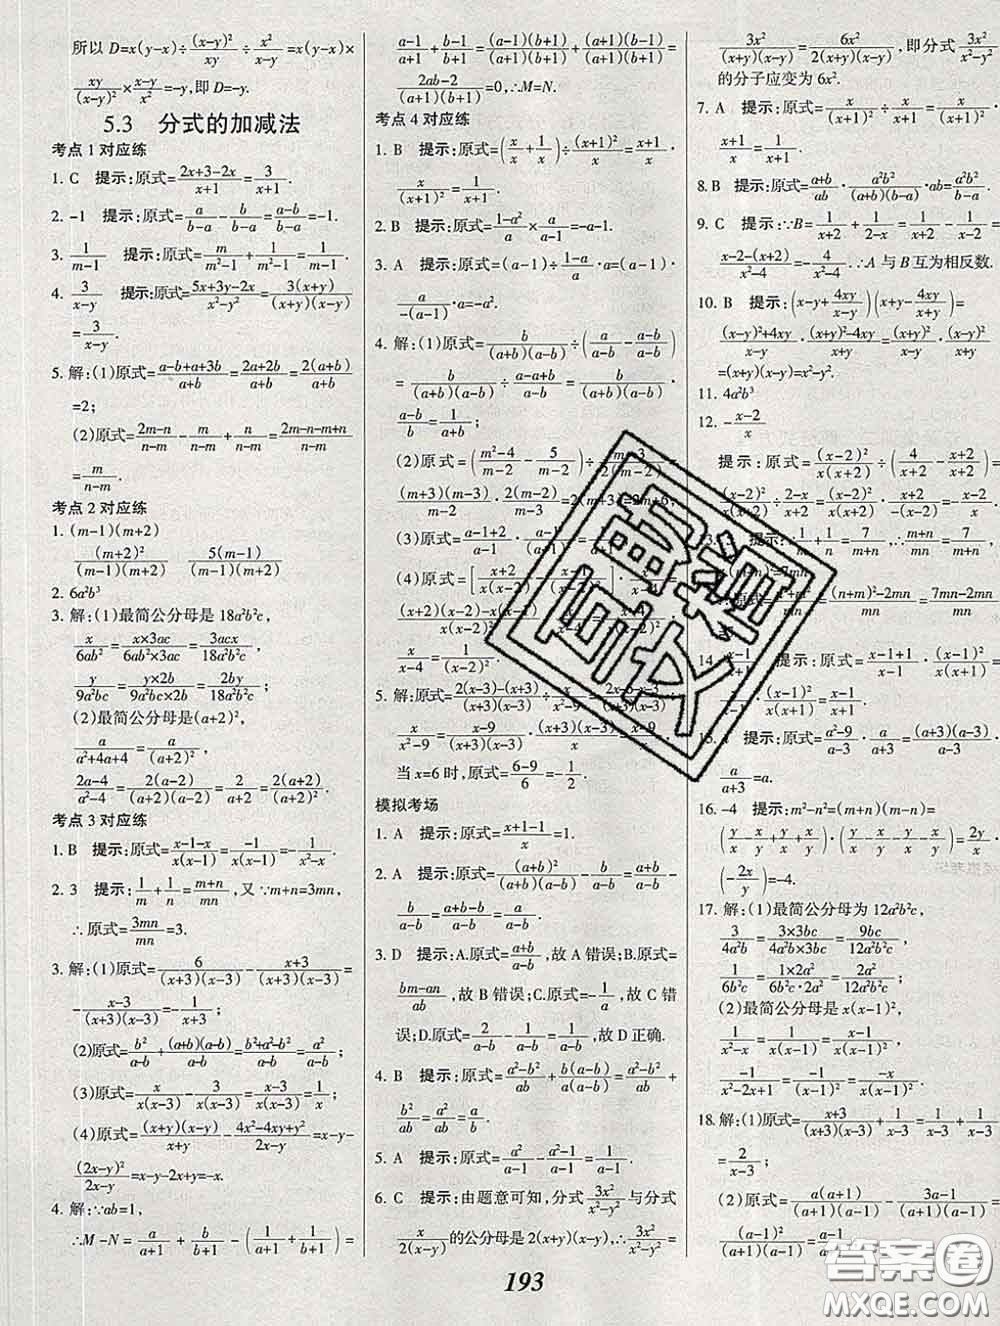 所以 D=x(y-x)÷(x-y)²/xy÷x²/(x-y)=x(y-x)×
xy/(x-y)²×(x-y)/x²=-y,即 D=-y.
5.3 分式的加减法
考点 1 对应练
1. C 提示:原式=(2x+3-2x)/(x+1)=3/(x+1).
2. -1 提示:原式=a/(b-a)-b/(b-a)=(a-b)/(b-a)=-1.
3. 1/(m-1) 提示:原式=m/(m²-1)+1/(m²-1)=1/(m-1).
4. 3/(x-y) 提示:原式=(5x+3y-2x)/(x²-y²)=3(x+y)/(x+y)(x-y)
=3/(x-y).
5. 解:(1)原式=(a-b+a+3b)/(a+b)=(2a+2b)/(a+b)=2(a+b)/(a+b)
=2;
(2)原式=(2m-n)/(n-m)-m/(n-m)+n/(n-m)=(2m-n-m+n)/(n-m)
=m/(n-m).
考点 2 对应练
1. (m-1)(m+2)
(m+2)²/(m-1)(m+2) 5(m-1)/(m-1)(m+2)
2. 6a²b³
3. 解:(1)最简公分母是 18a²b²c,
x/6ab²=(x×3ac)/(6ab²×3ac)=3acx/18a²b²c,
y/9a²bc=(y×2b)/(9a²bc×2b)=2by/18a²b²c;
(2)最简公分母是(a+2)²,
a/(a²+4a+4)=a/(a+2)²,
(2a-4)/(a²-4)=2(a-2)/(a+2)(a-2)=2/(a+2)=2(a+2)/(a+2)².
考点 3 对应练
1. B 提示:原式=(x-1-x)/x(x-1)=-1/x(x-1)=1/(x-x²).
2. 3 提示:1/m+1/n=(m+n)/mn,又∵m+n=3mn,
∴原式=3mn/mn=3.
3. 解:(1)原式=6/(x+3)(x-3)-(x+3)/(x+3)(x-3)=
-(x-3)/(x+3)(x-3)=-1/(x+3);
(2)原式=b²/(a-b)+(a+b)(a-b)/(a-b)=(b²+a²-b²)/(a-b)=a²/(a-b);
(3)原式=x/x(x-3)-3/x(x-3)=(x-3)/x(x-3)=1/x;
(4)原式=(x+y)(x-y)/(x+y)-(4x²-4xy+y²)/(2x-y)=x-y-
(2x-y)²/(2x-y)=x-y-2x+y=-x.
4. 解:∵ab=1,
∴M-N=a/(a+1)+b/(b+1)-(1/(a+1)+1/(b+1))=
(a-1)/(a+1)+(b-1)/(b+1)=(a-1)(b+1)/(a+1)(b+1)+(a+1)(b-1)/(a+1)(b+1)=
(2ab-2)/(a+1)(b+1)=0,∴M=N.
考点 4 对应练
1. B 提示:原式=(x/x+1/x)÷(x+1)²/x=(x+1)/x·
x/(x+1)²=1/(x+1).
2. B 提示:原式=(1-a²)/a×a/(a-1)=-a-1.
3. A 提示:原式=(a-1)÷(1-a)/a·a=(a-1)·
a/-(a-1)·a=-a².
4. 解:(1)原式=b/(a+b)(a-b)÷(a/(a-b)-(a-b)/(a-b))
=b/(a+b)(a-b)÷(a-a+b)/(a-b)=b/(a+b)(a-b)·
(a-b)/b=1/(a+b);
(2)原式=((m²-4)/(m-2)-5/(m-2))÷(m-3)/2(m-2)=
(m+3)(m-3)/(m-2)·2(m-2)/(m-3)=2(m+3)=2m+6;
(3)原式=(a-1+2)/(a-1)·
(4)原式=[(x+2)/x(x-2)-
(x+2)(x-2)-x(x-1)/x(x-2)²·x/(x-4)=
x/(x-4)=1/(x-2)².
5. 解:原式=2(x-3)-(x+3)/(x+3)(x-3)÷x/(x²-9)=
x/(x²-9)=(x-9)/(x+3)(x-3)·(x+3)(x-3)/x=(x-9)/x.
当 x=6 时,原式=(6-9)/6=-1/2.
模拟考场
1. A 提示:原式=(x+1-1)/x=1.
2. A 提示:原式=(a+b)²/(a+b)(a-b)-b/(a-b)=
(a+b)/(a-b)-b/(a-b)=(a+b-b)/(a-b)=a/(a-b).
3. D 提示:A.原式=(a+b)/ab,故 A 错误;B.原式=
(bm-an)/ab,故 B 错误;C.原式=-1/a,故 C 错
误;D.原式=2/(a-b)-1/(a-b)=1/(a-b),故 D 正确.
4. B 提示:原式=(a²-b²)/ab+b(a-b)/a(a-b)=(a²-b²)/ab+
b²/ab=a²/ab=a/b.
5. A 提示:原式=a²/(a-1)-(a²-1)/(a-1)=1/(a-1).
6. C 提示:由题意可知,分式3x²/(x²-y²)与分式
x/2(x-y)的公分母是 2(x+y)(x-y),∴3x²/(x²-y²)=
3x²/(x+y)(x-y)=6x²/2(x+y)(x-y),即分式3x²/(x²-y²)
的分子应变为 6x².
7. A 提示:原式=x/(x+1)²÷x/(x+1)=x/(x+1)²·
(x+1)/x=1/(x+1).
8. B 提示:原式=(a+b)/ab·a²b²/(a+b)(b-a)·ab=a²b²/(b-a).
9. C 提示:∵B=1/(x+2)+1/(2-x)=1/(x+2)-1/(x-2)=
(x-2-(x+2))/(x²-4)=-4/(x²-4).∴A 与 B 互为相反数.
10. B 提示:(x-y+4xy/(x-y))(x+y-4xy/(x+y))=
((x-y)²+4xy)/(x-y)·((x+y)²-4xy)/(x+y)=(x+y)²/(x-y)·(x-y)²/(x+y)
=(x+y)(x-y)=x²-y².
11. 4a²b³
12. -(x-2)/x
提示:原式=(x-2)²/x(x+2)÷(4/(x+2)-(x+2)/(x+2))=
(x-2)²/x(x+2)÷(2-x)/(x+2)=(x-2)²/x(x+2)·(x+2)/-(x-2)=-(x-2)/x
提示:1/n+1/m=7/(m+n),∴(m+n)/mn=7/(m+n),
=7mn,
=(n+m)²-2mn/mn=(7mn-2mn)/mn
14. (x-1)/(x+1) 提示:原式=(x-1+1)/(x-1)·(x-1)²/x(x+1)=
x/(x-1)·(x-1)²/x(x+1)=(x-1)/(x+1).
提示:原式=(a²-9)/(a-3)·a/(a+3)=(a+3)(a-3)/(a-3)·
a/(a+3)=a.
16. -4 提示:m²-n²=(m+n)(m-n)=
(y/x-x/y+y/x+x/y)·(y/x-x/y-y/x-x/y)=2y/x·
(-2x/y)=-4.
17. 解:(1)最简公分母为 12a²b²c,
3/4a²b=(3×3bc)/(4a²b×3bc)=9bc/12a²b²c,
1/6b²c=(1×2a²)/(6b²c·2a²)=2a²/12a²b²c;
(2)最简公分母为 x(x-1)²,
1/(x²-x)=1/x(x-1)=(x-1)/x(x-1)²,
-1/(x²-2x+1)=-1/(x-1)²=-x/x(x-1)².
18. 解:(1)原式=(x+3)/(x+3)(x-3)+1/(x-3)=1/(x-3)+1/(x-3)
=2/(x-3);
(2)原式=a(a+1)/(a+1)(a-1)-(3a-1)/(a+1)(a-1)=
193
答案圈
MXQE.COM